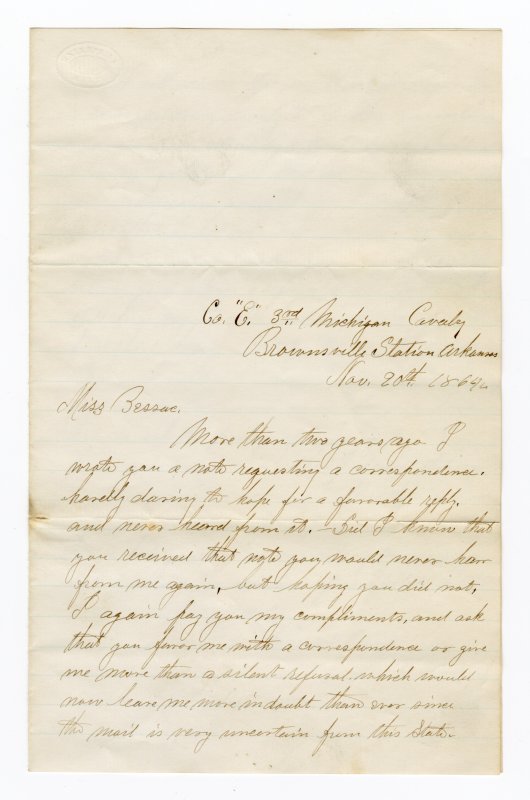 Co. "E." 3rd Michigan Cavaly
Brownsville Station Arkansas
Nov. 20th. 1864.
Miss Bessac.
More than two years ago I
wrote you a note requesting a correspondence.
hardly daring to hope for a favorable reply.
and never heard from it. - Did I know that
you received that note you would never hear
from me again, but hoping you did not,
I again pay you my compliments, and ask
that you favor me with a correspondence or give
me more than a silent refusal which would
now leave me more in doubt than ever since
the mail is very uncertain from this State.